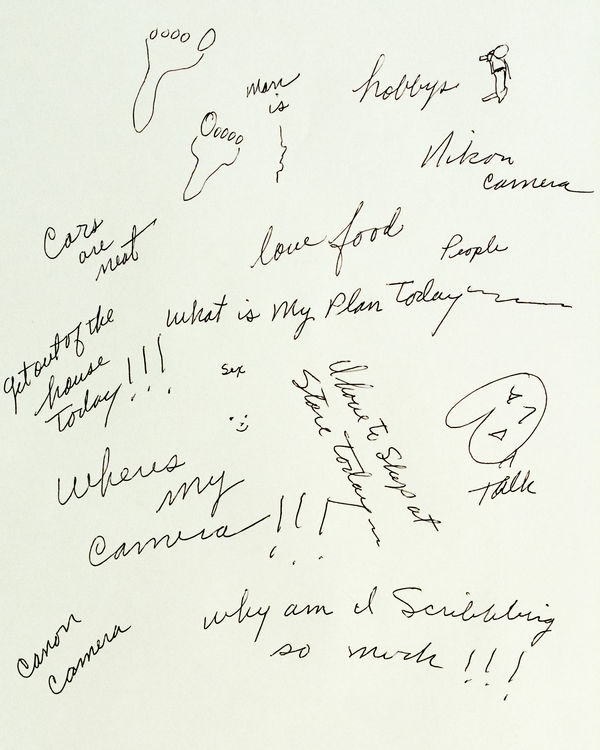 man
is
hobbys
Nikon
camera
Cars
are
neat
love food
People
what is My Plan Today
get out of the
house
Today!!!
sex
I have to Shop at
Store Today
Talk
Wheres
my
Camera!!!
why am I Scribbling
so much!!!
Canon
Camera